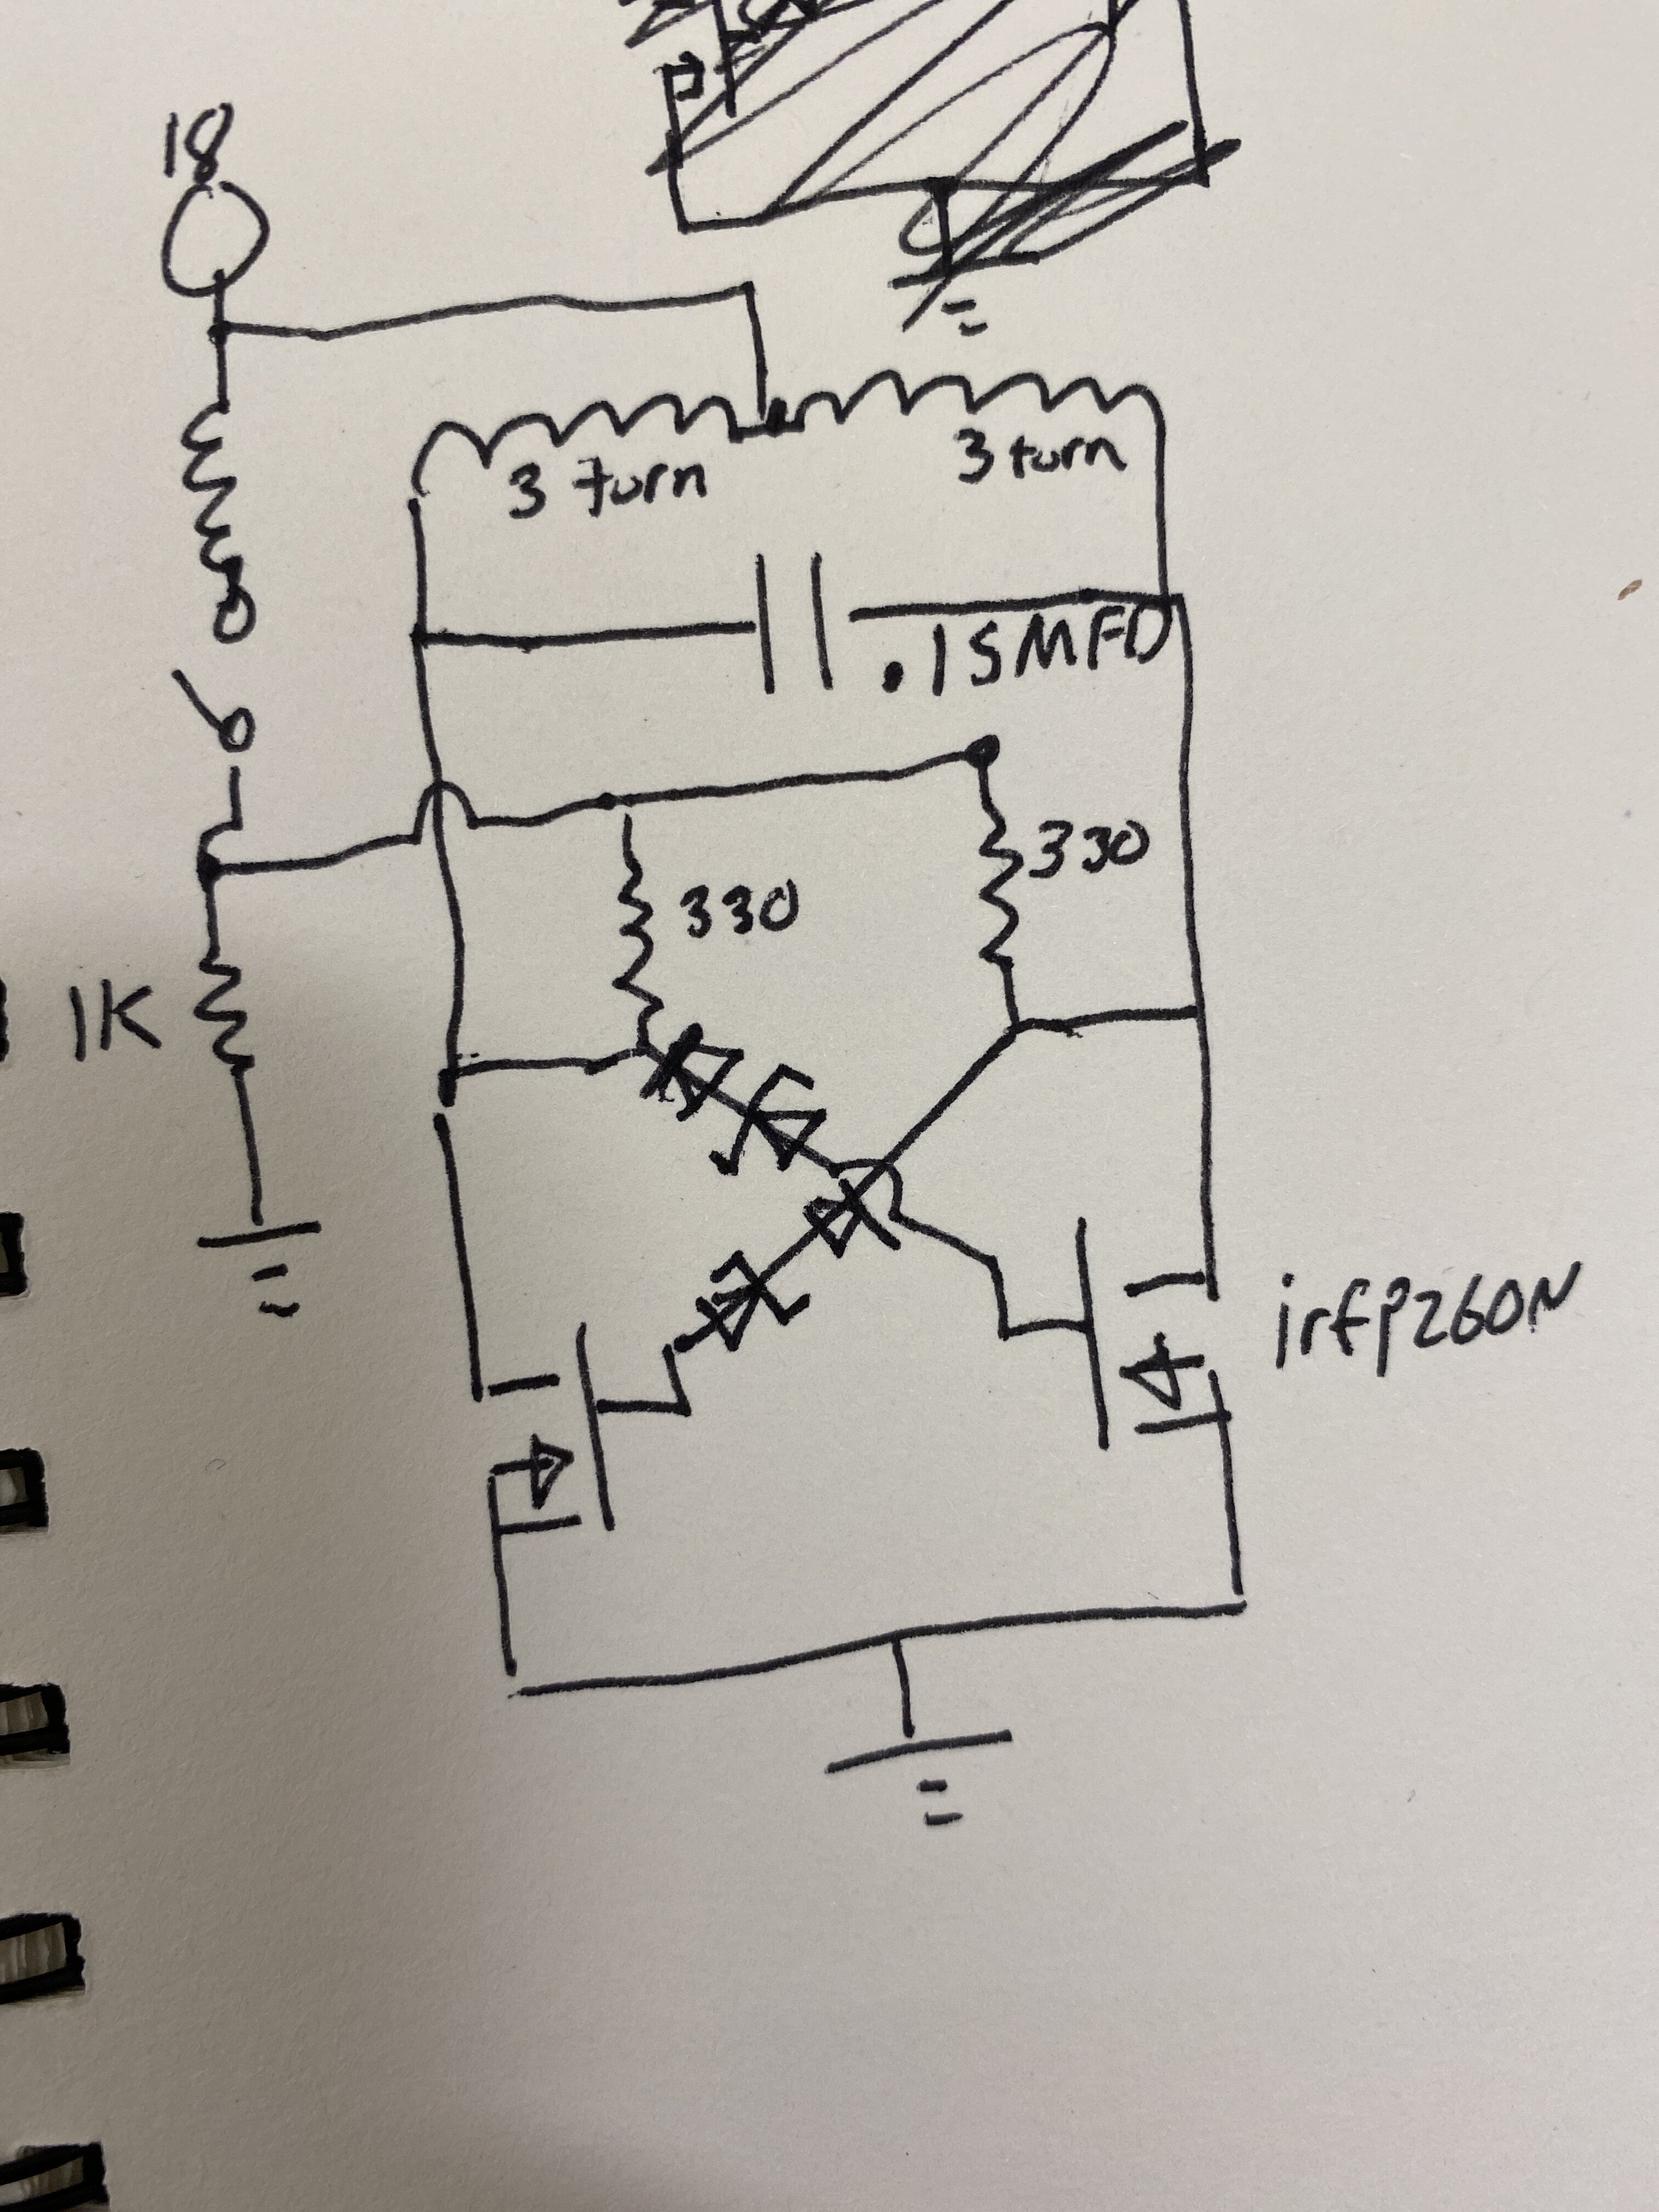 18
3 turn
3 turn
.15MFD
330
330
1K
irfp260N